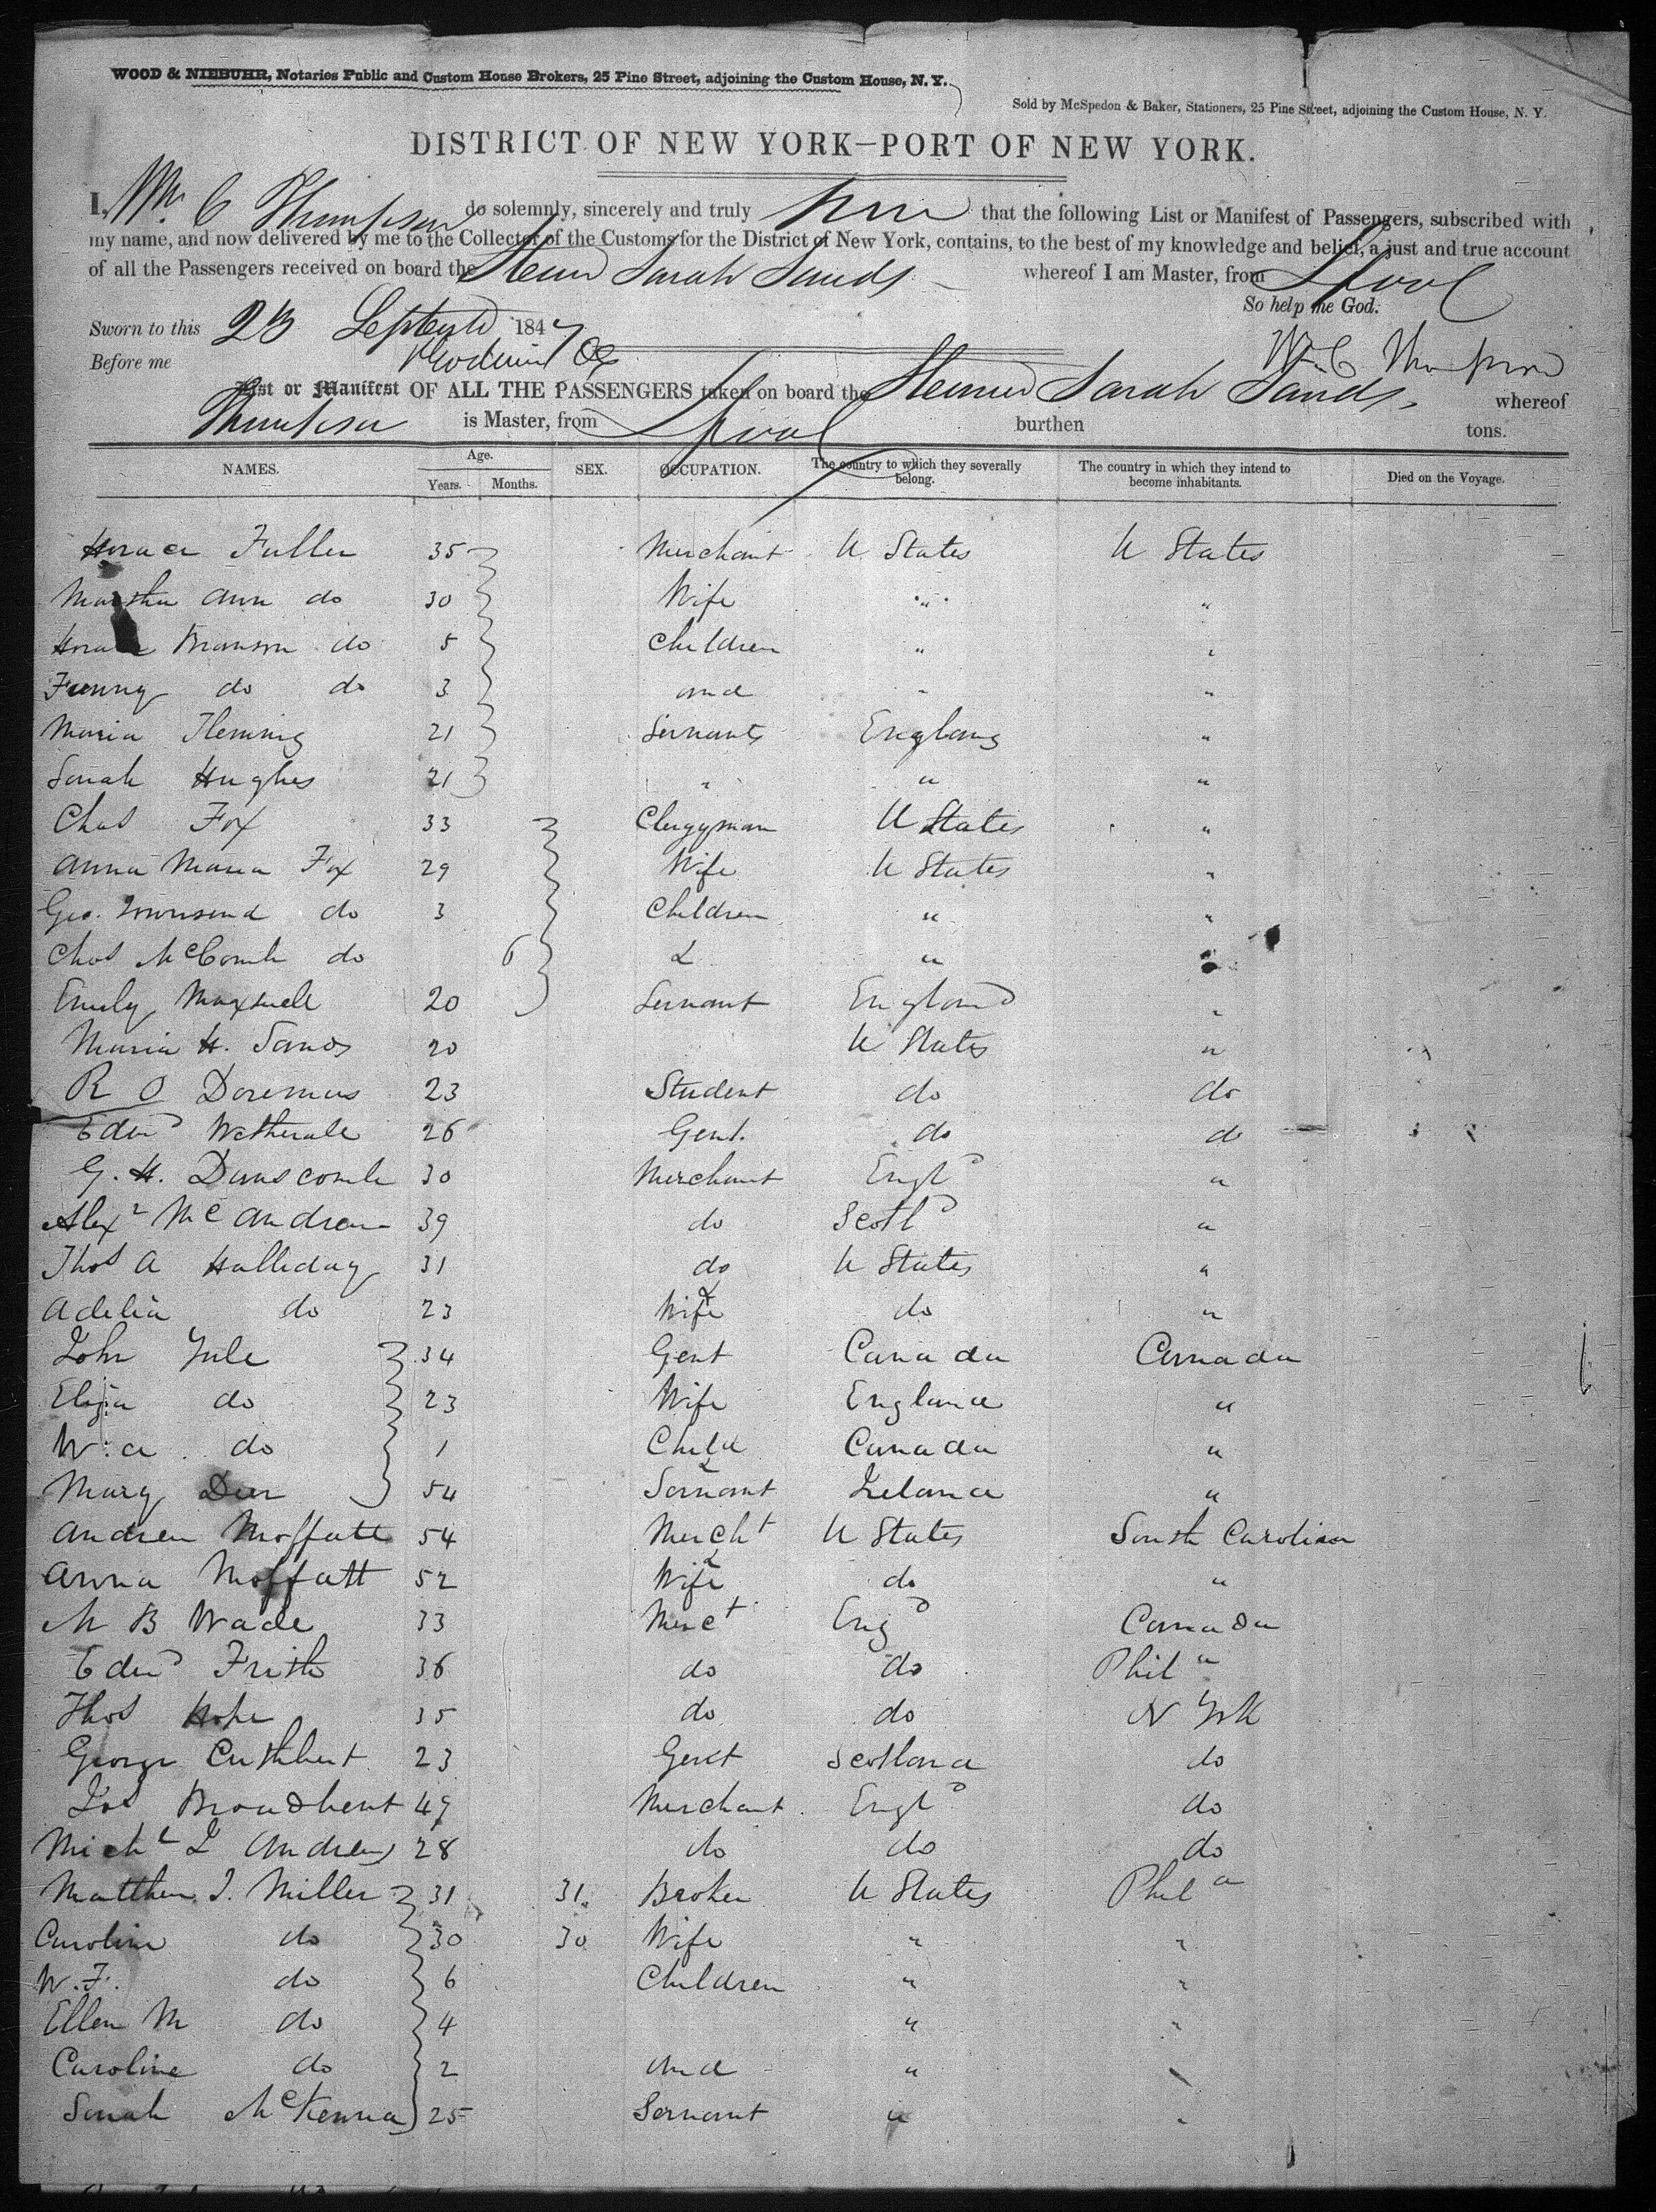 WOOD & NIEBUHR, Notaries Public and Custom House Brokers, 25 Pine Street, adjoining the Custom House, N. Y.
Sold by McSpedon & Baker, Stationers, 25 Pine Street, adjoining the Custom House, N. Y.
DISTRICT OF NEW YORK—PORT OF NEW YORK.
I, Wm. C Thompson do solemnly, sincerely and truly that the following List or Manifest of Passengers, subscribed with
my name, and now delivered by me to the Collector of the Customs for the District of New York, contains, to the best of my knowledge and belief, a just and true account
of all the Passengers received on board the Sarah Sands whereof I am Master, from Lpool
So help me God.
Sworn to this 23 1847
Before me Wm C Thompson
List or Manifest OF ALL THE PASSENGERS taken on board the Steamer Sarah Sands, whereof
Thompson is Master, from Lpool burthen tons.
NAMES. Age. Years. Months. SEX. OCCUPATION. The country to which they severally belong. The country in which they intend to become inhabitants. Died on the Voyage.
Horace Fuller 35 Merchant U States U States
Martha Ann do 30 Wife " "
Horace Branson do 5 Children " "
Fanny do do 3 and " "
Maria Fleming 21 Servants England "
Sarah Hughes 21 " " "
Chas Fox 33 Clergyman U States "
Anna Maria Fox 29 Wife U States "
Geo. Townsend do 3 Children " "
Chas McComb do 6 & " "
Emily Maxwell 20 Servant England "
Maria H. Sands 20 U States "
R O Doremus 23 Student do do
Edwd 26 Gent. do do
G. H. Dunscomb 30 Merchant Engld "
Alexr McAndrew 39 do Scotld "
Thos A Halliday 31 do U States "
Adelia do 23 & Wife do "
John Yule 34 Gent Canada Canada
Eliza do 23 Wife England "
W. A. do 1 Child Canada "
Mary Deer 54 & Servant Ireland "
Andrew Moffatt 54 Mercht U States South Carolina
Anna Moffatt 52 & Wife do "
M B Wade 33 Merct Engd Canada
Edwd Frith 36 do do Phila
Thos Hope 35 do do N York
George Cuthbert 23 Gent Scotland do
Jos Broadbent 49 Merchant Engld do
Michl J Andrews 28 do do do
Matthew J. Miller 31 31. Broker U States Phila
Caroline do 30 30 Wife " "
W. F. do 6 Children " "
Ellen M do 4 " "
Caroline do 2 and " "
Sarah McKenna 25 Servant " "